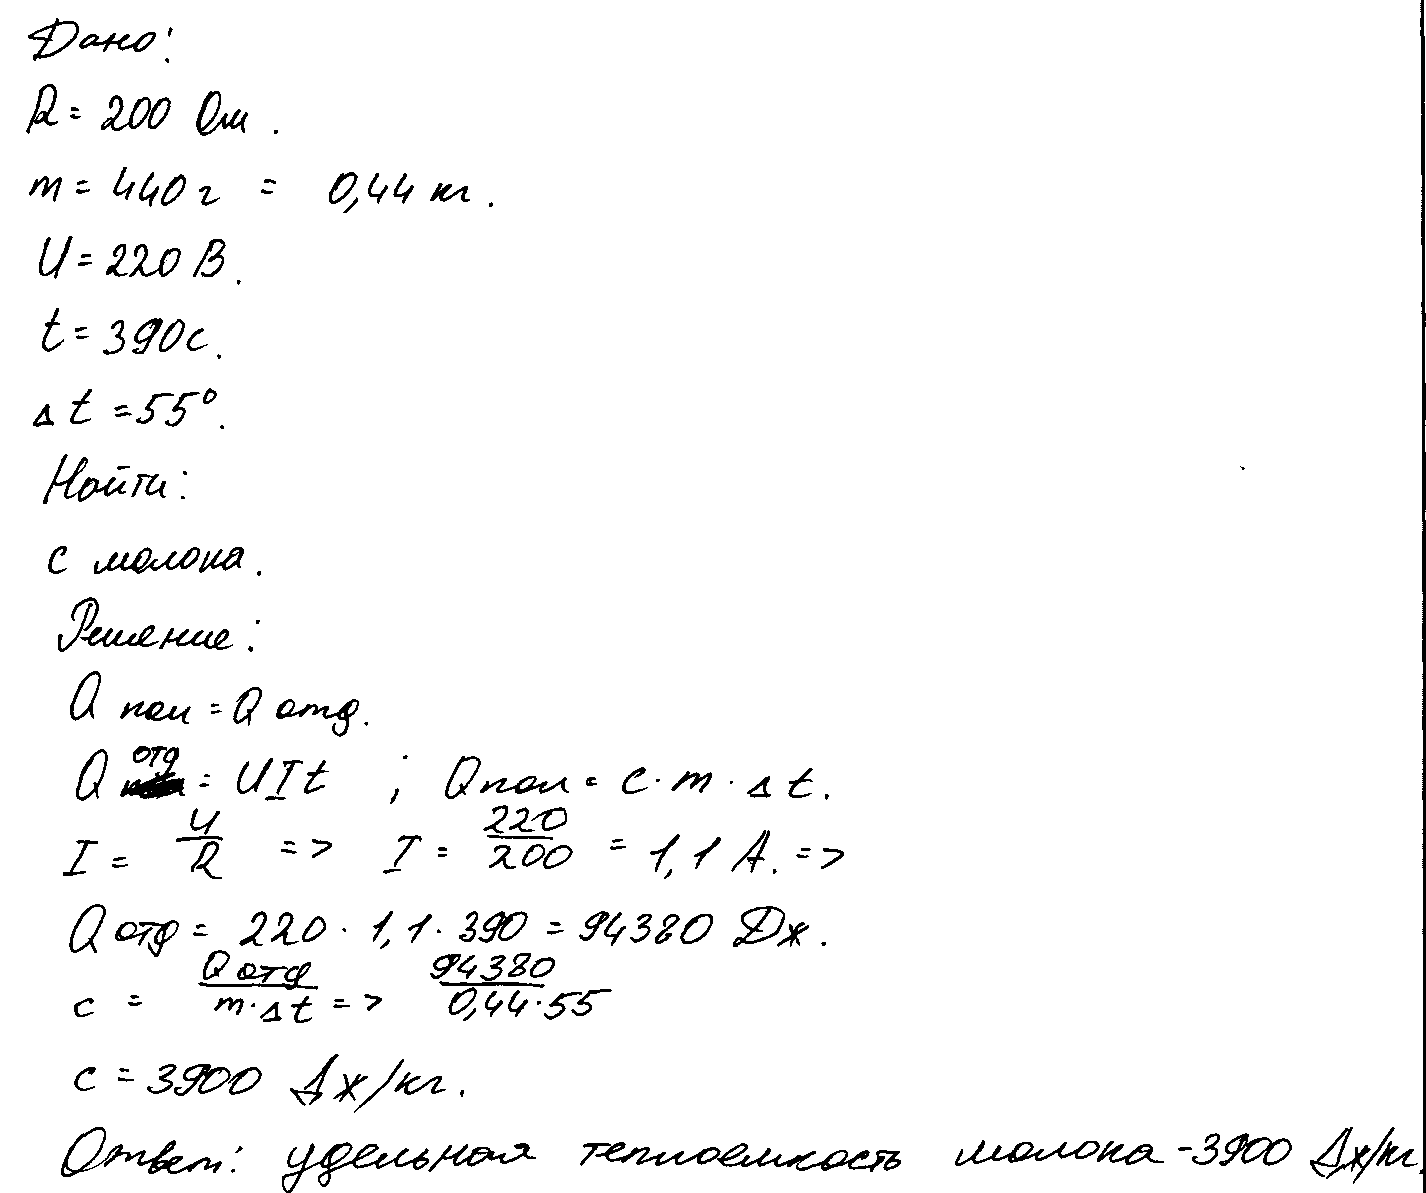 Дано:
R = 200 Ом.
m = 440 г = 0,44 кг.
U = 220 В.
t = 390 с.
Δt = 55°.
Найти:
с молока.
Решение:
Q пол = Q отд.
Q отд = UIt ; Q пол = c · m · Δt.
I = U/R => I = 220/200 = 1,1 А. =>
Q отд = 220 · 1,1 · 390 = 94380 Дж.
c = Q отд/m·Δt => 94380/0,44·55
c = 3900 Дж/кг.
Ответ: удельная теплоемкость молока - 3900 Дж/кг.